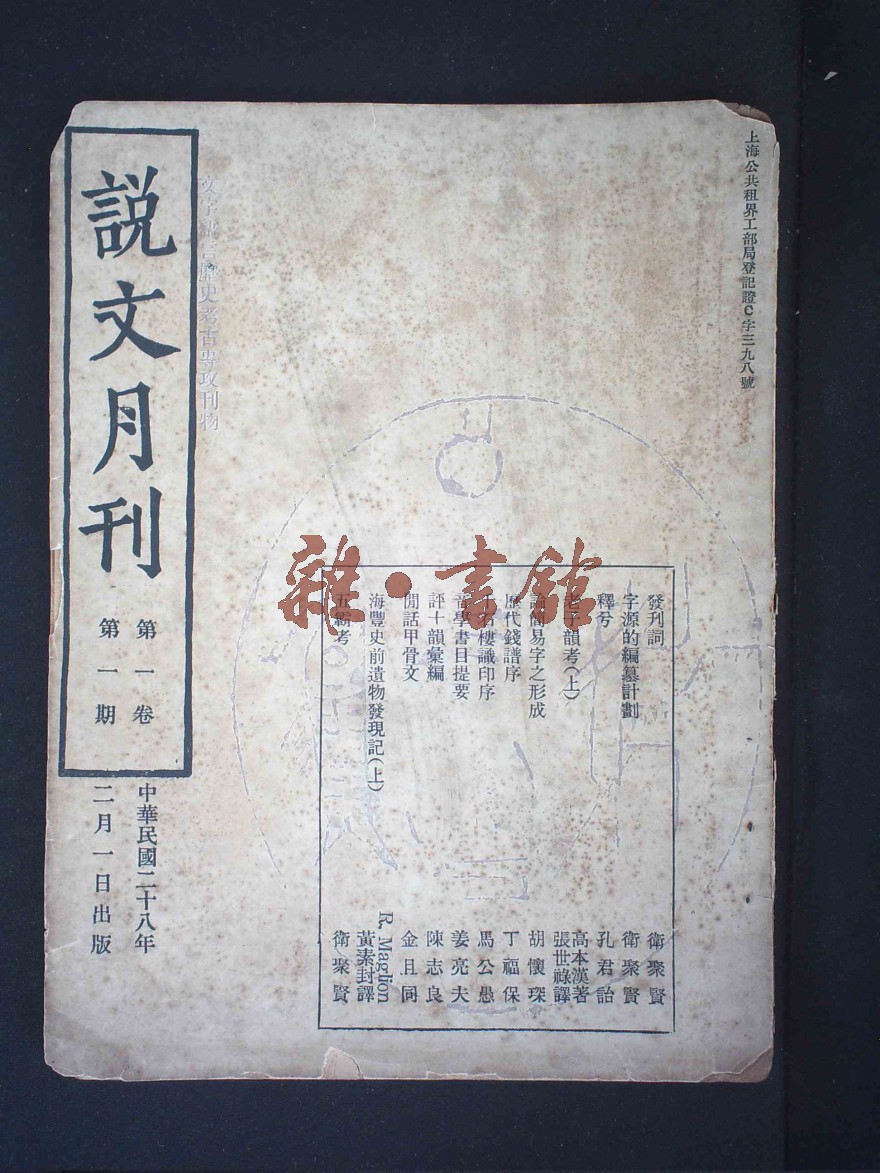 上海公共租界工部局登記證C字三九八號
說文月刊
第一卷
第一期
中華民國二十八年
二月一日出版
歷史考古專攻刊物
雜·書館
發刊詞 衛聚賢
字源的編纂計劃 衛聚賢
釋兮 孔君詒
老子韻考(上) 高本漢著 張世祿譯
論簡易字之形成 胡懷琛
歷代錢譜序 丁福保
石樓識印序 馬公愚
音學書目提要 姜亮夫
評十韻彙編 陳志良
閒話甲骨文 金且同
海豐史前遺物發現記(上) R. Maglion 黃素封譯
五霸考 衛聚賢